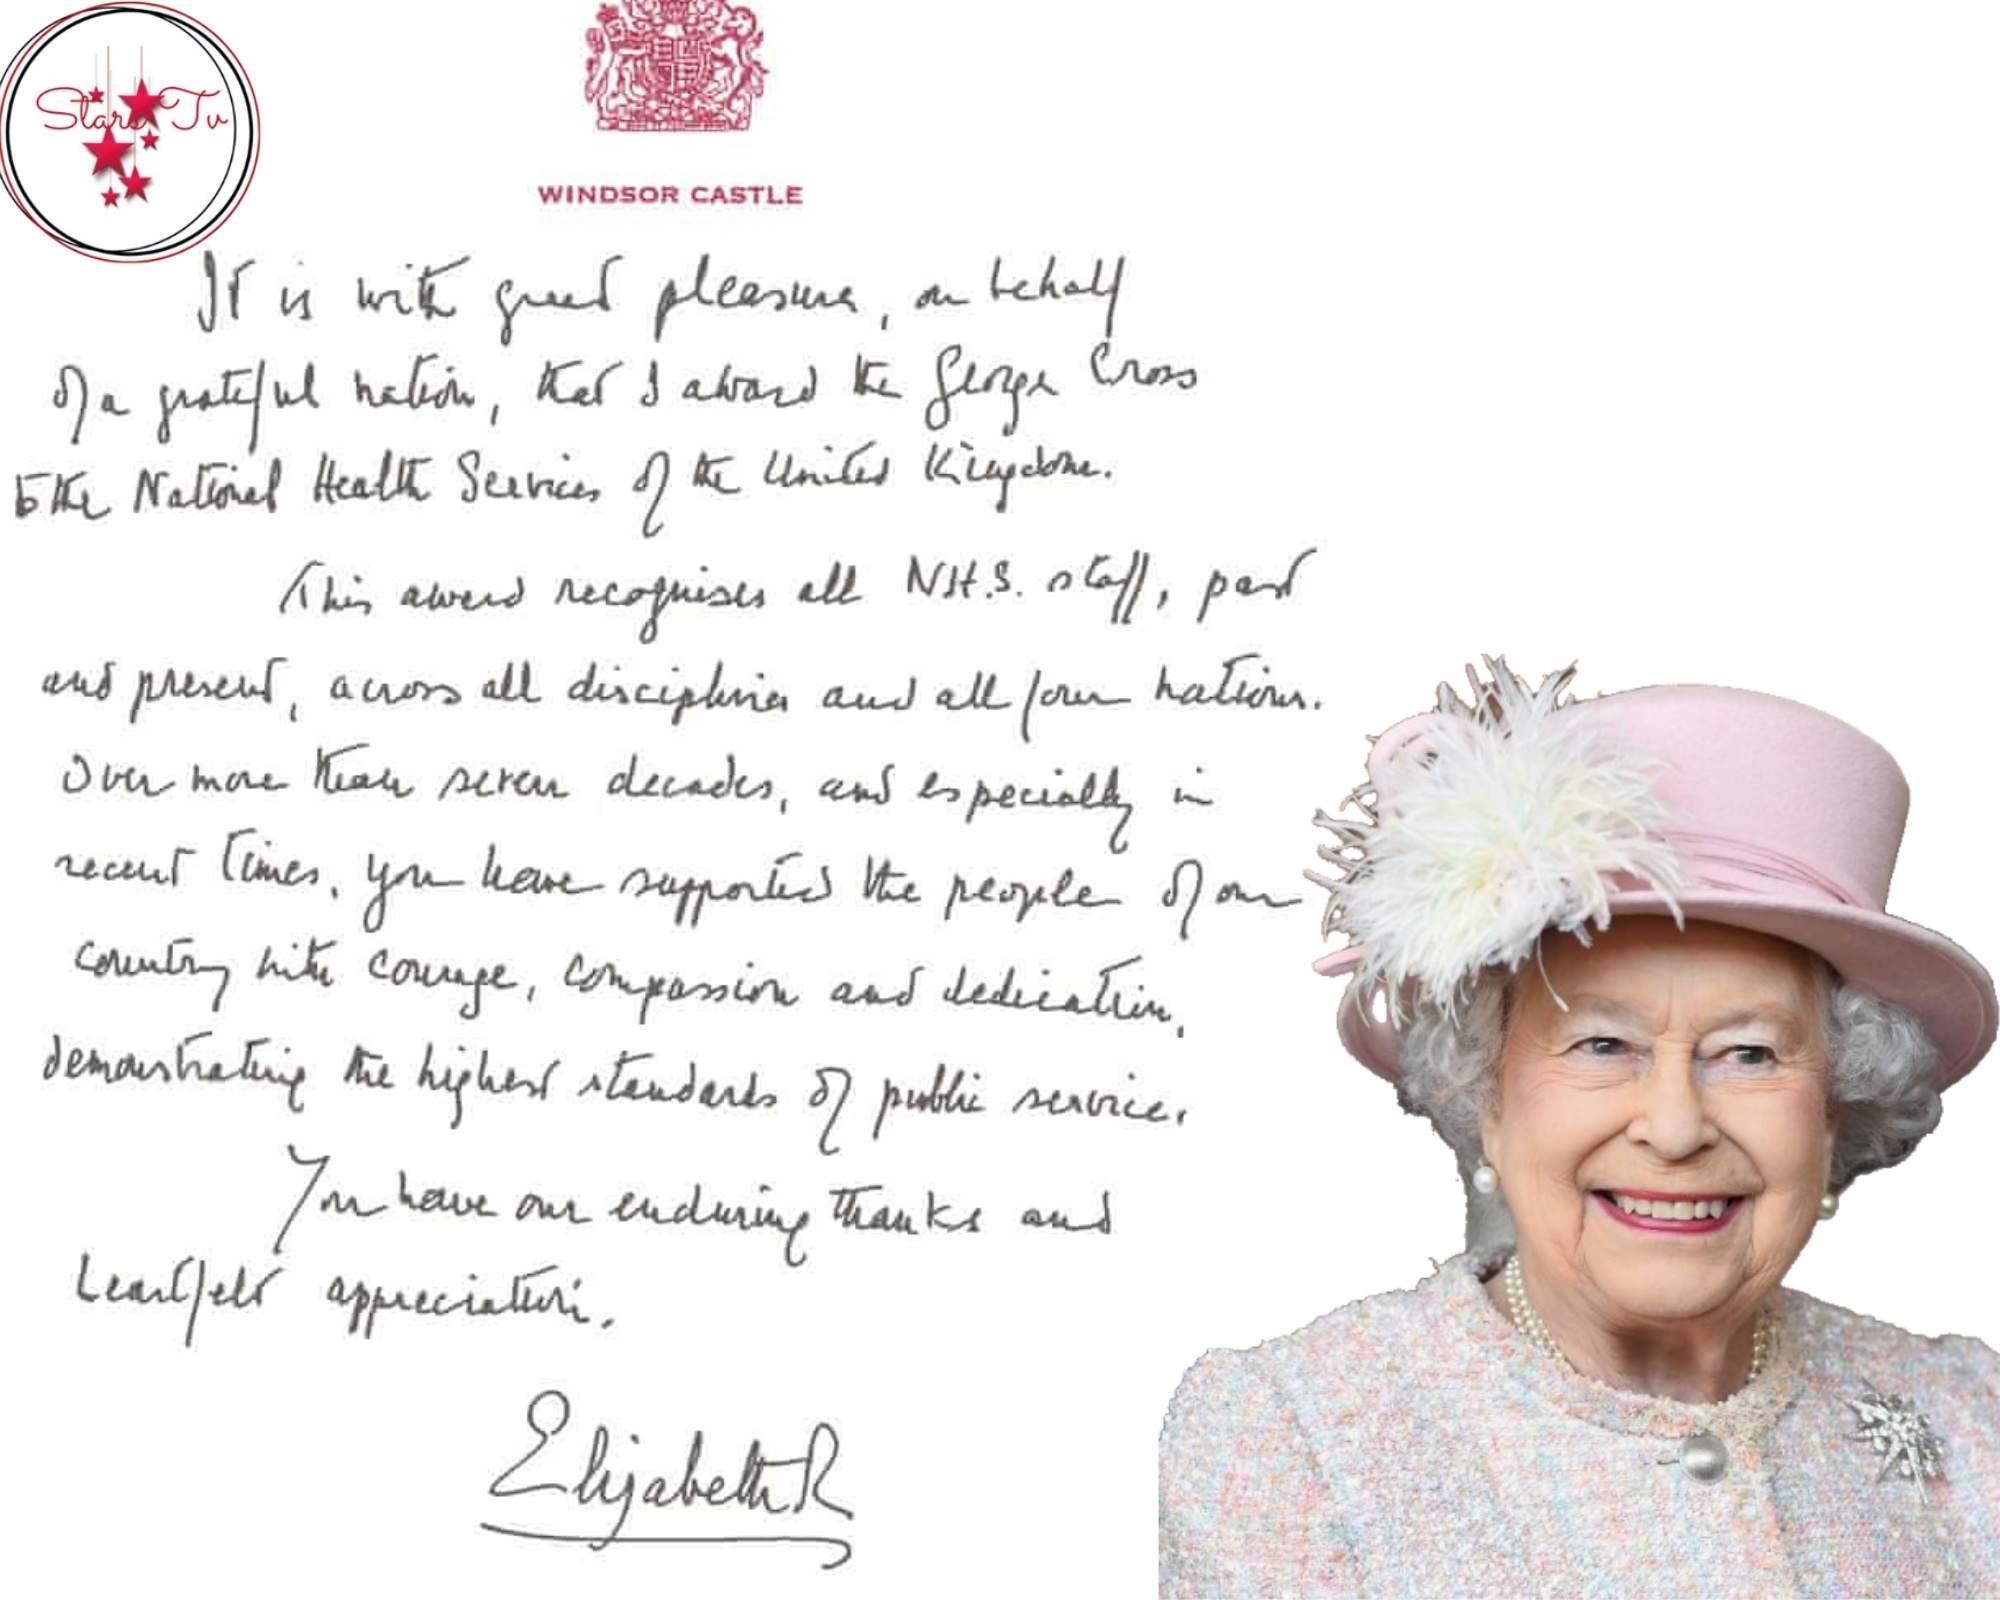 Stars Tv
WINDSOR CASTLE
It is with great pleasure, on behalf
of a grateful nation, that I award the George Cross
to the National Health Services of the United Kingdom.
This award recognises all N.H.S. staff, past
and present, across all disciplines and all four nations.
Over more than seven decades, and especially in
recent times, you have supported the people of our
country with courage, compassion and dedication,
demonstrating the highest standards of public service.
You have our enduring thanks and
heartfelt appreciation.
Elizabeth R